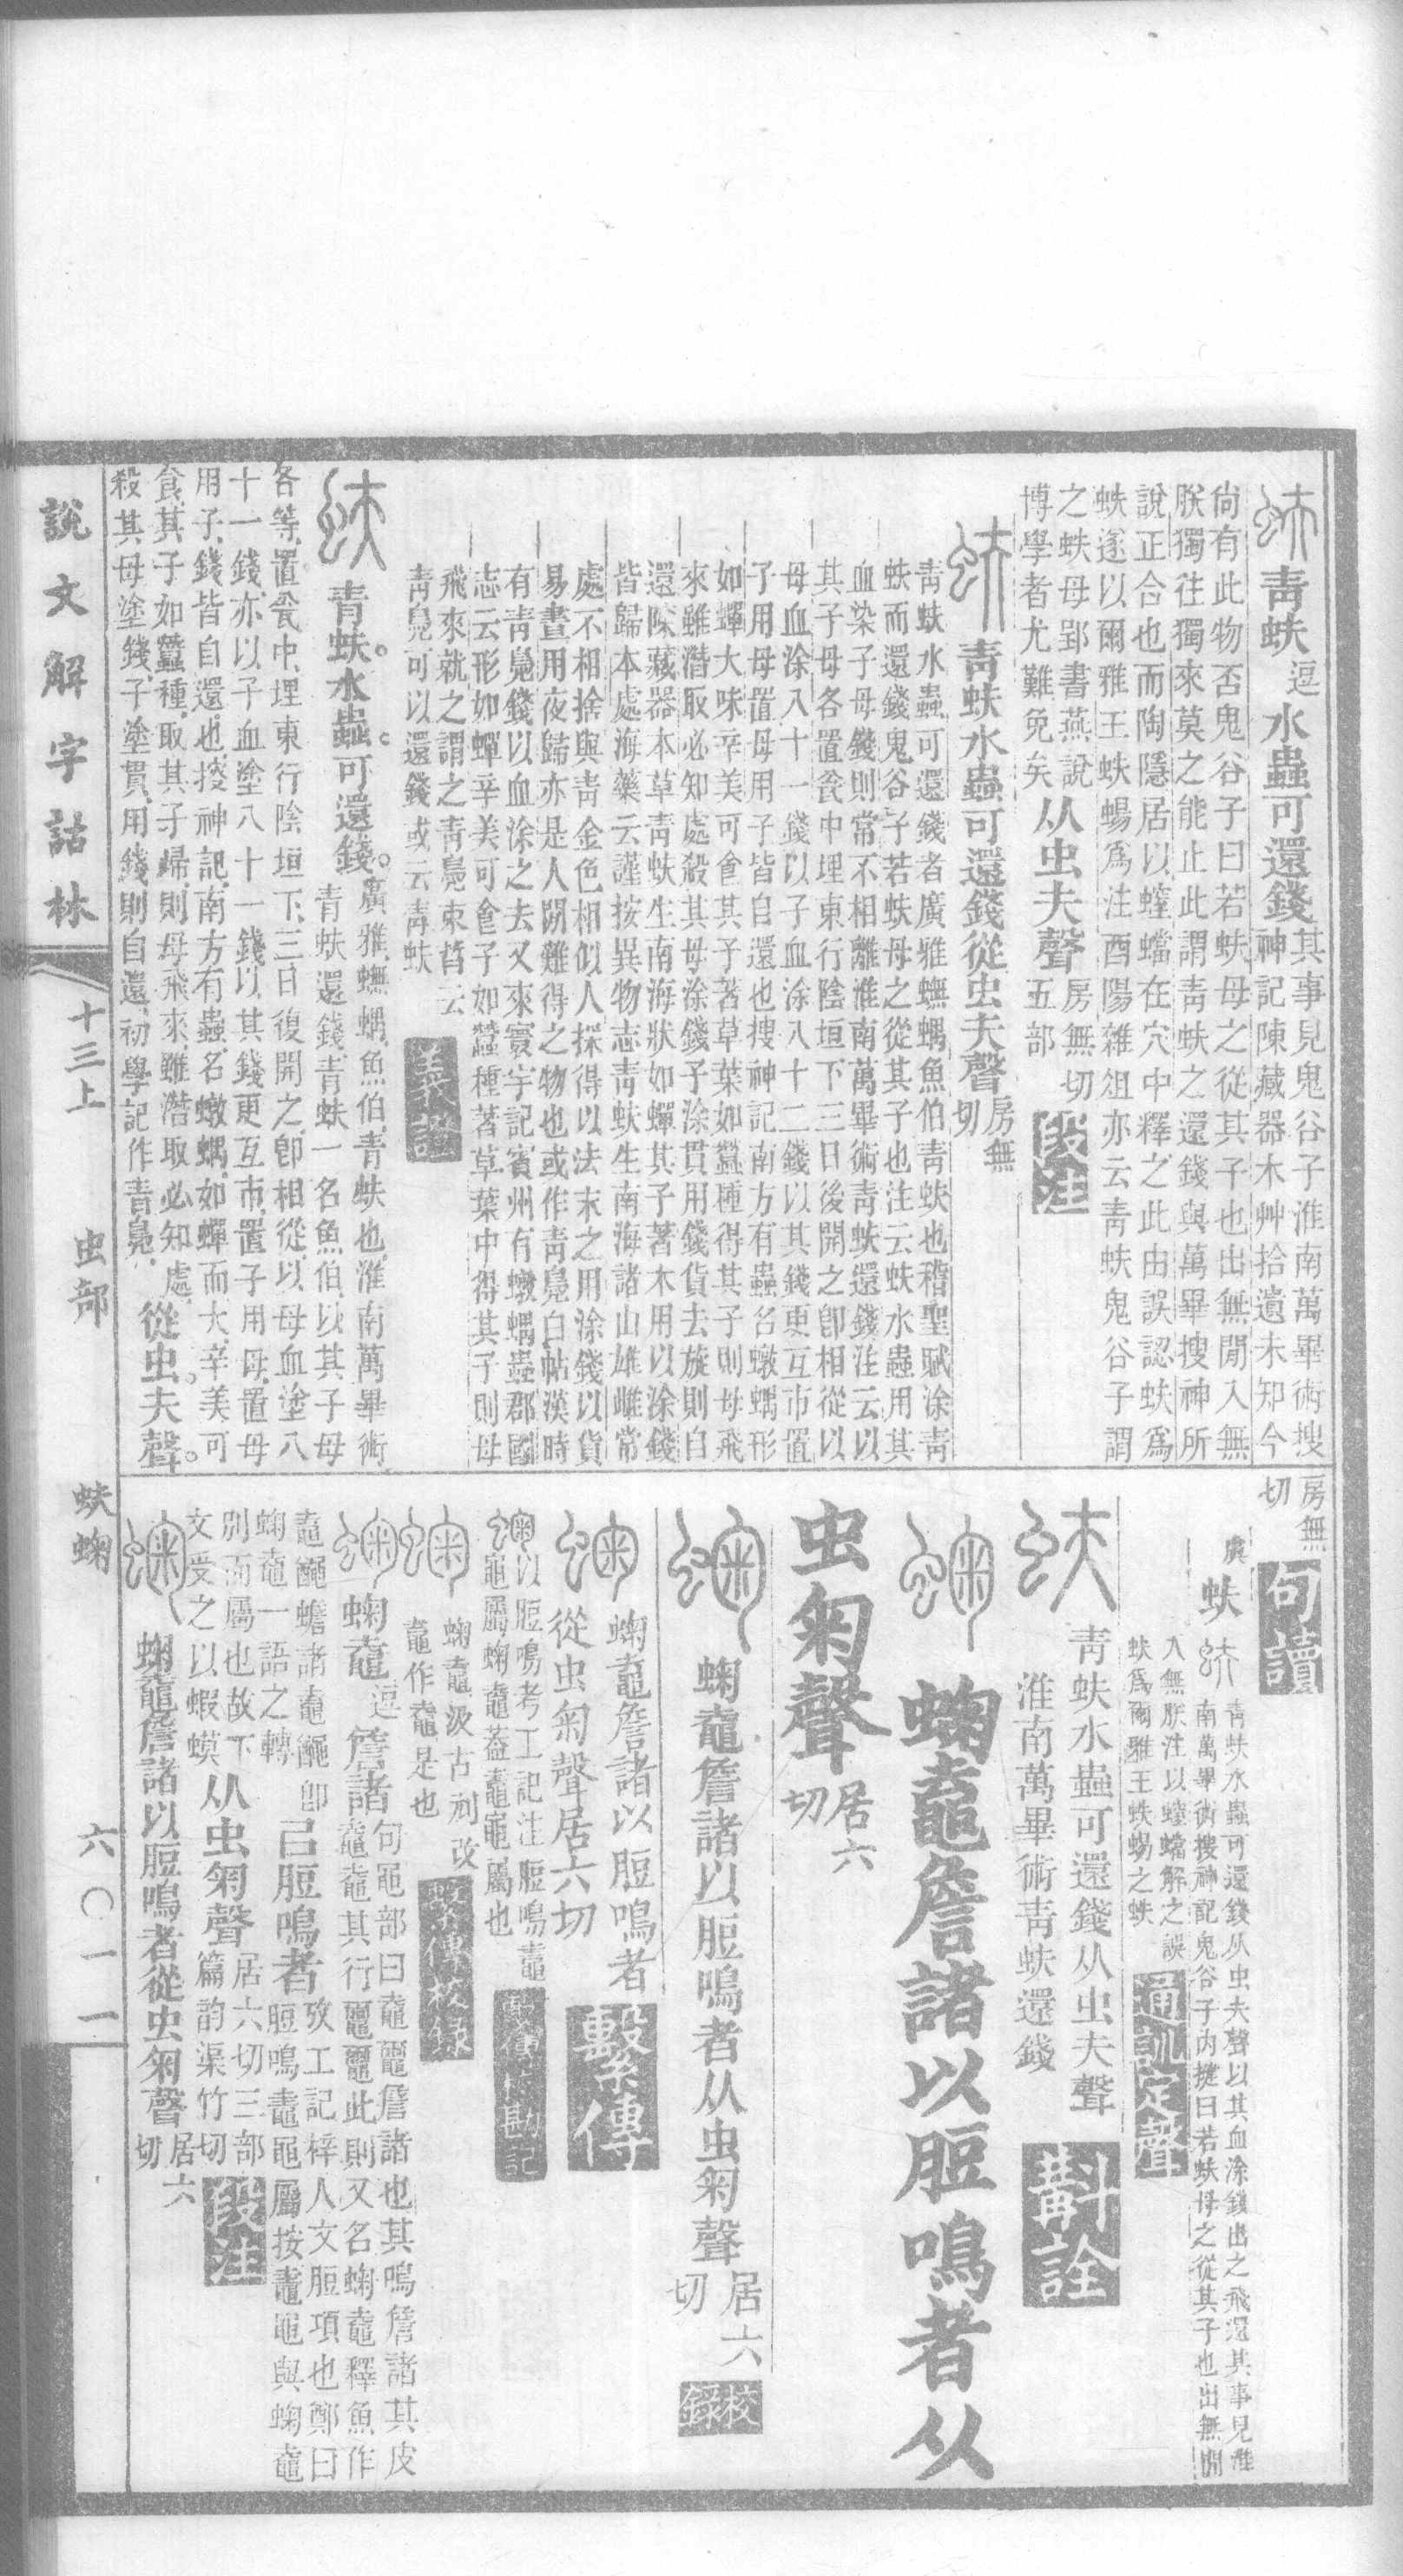 青蚨逗水蟲可還錢其事見鬼谷子淮南萬畢術搜
神記陳藏器本艸拾遺未知今
尚有此物否鬼谷子曰若蚨母之從其子也出無閒入無
朕獨往獨來莫之能止此謂青蚨之還錢與萬畢搜神所
說正合也而陶隱居以螳蟷在穴中釋之此由誤認蚨爲
蚨遂以爾雅王蚨蜴爲注酉陽雜俎亦云青蚨鬼谷子謂
之蚨母郢書燕說
博學者尤難免矣从虫夫聲房無切
五部段注
青蚨水蟲可還錢從虫夫聲房無
切
青蚨水蟲可還錢者廣雅蟱蝸魚伯青蚨也稽聖賦涂青
蚨而還錢鬼谷子若蚨母之從其子也注云蚨水蟲用其
血染子母錢則常不相離淮南萬畢術青蚨還錢注云以
其子母各置瓮中埋東行陰垣下三日後開之卽相從以
母血涂八十一錢以子血涂八十二錢以其錢更互市置
子用母置母用子皆自還也搜神記南方有蟲名蝳蝸形
如蟬大味辛美可食其子著草葉如蠶種得其子則母飛
來雖潛取必知處殺其母涂錢子涂貫用錢貨去旋則自
還陳藏器本草青蚨生南海狀如蟬其子著木用以涂錢
皆歸本處海藥云謹按異物志青蚨生南海諸山雄雌常
處不相捨與青金色相似人採得以法末之用涂錢以貨
易晝用夜歸亦是人閒難得之物也或作青鳧白帖漢時
有青鳧錢以血涂之去又來寰宇記賓州有蝳蝸蟲郡國
志云形如蟬辛美可食子如蠶種著草葉中得其子則母
飛來就之謂之青鳧束晳云
青鳧可以還錢或云青蚨義證
青蚨。水蟲。可還錢。廣雅,蟱蝸,魚伯,青蚨也,淮南萬畢術,
青蚨還錢,青蚨一名魚伯,以其子母
各等,置瓮中,埋東行陰垣下,三日復開之,卽相從,以母血塗八
十一錢,亦以子血塗八十一錢,以其錢更互市,置子用母,置母
用子,錢皆自還也,搜神記,南方有蟲,名蝳蝸,如蟬而大,辛美可
食,其子如蠶種,取其子歸,則母飛來,雖潛取,必知處,
殺其母塗錢,子塗貫,用錢則自還,初學記作青鳧,從虫。夫聲。
房無
切句讀
虞蚨青蚨水蟲可還錢从虫夫聲以其血涂錢出之飛還其事見淮
南萬畢術搜神記鬼谷子內揵曰若蚨母之從其子也出無閒
入無朕注以螳蟷解之誤
蚨爲爾雅王蚨蜴之蚨通訓定聲
青蚨水蟲可還錢从虫夫聲
淮南萬畢術青蚨還錢斠詮
蜠鼀詹諸以脰鳴者从
虫匊聲居六
切
蜠鼀詹諸以脰鳴者从虫匊聲居六
切校錄
蜠鼀詹諸以脰鳴者
從虫匊聲居六切繫傳
以脰鳴考工記注脰鳴鼃
黽屬蜠鼀蓋鼃黽屬也繫傳校勘記
蜠鼀汲古刓改
鼀作鼀是也繫傳校錄
蜠鼀逗詹諸句黽部曰鼀𪓰詹諸也其鳴詹諸其皮
鼀鼀其行𪓰𪓰此則又名蜠鼀釋魚作
鼀䵷蟾諸鼀䵷卽
蜠鼀一語之轉㠯脰鳴者攷工記梓人文脰項也鄭曰
脰鳴鼃黽屬按鼃黽與蜠鼀
別而屬也故下
文受之以蝦蟆从虫匊聲居六切三部
篇韵渠竹切段注
蜠鼀詹諸以脰鳴者從虫匊聲居六
切
說文解字詁林
十三上
虫部
蚨蜠
六〇一一